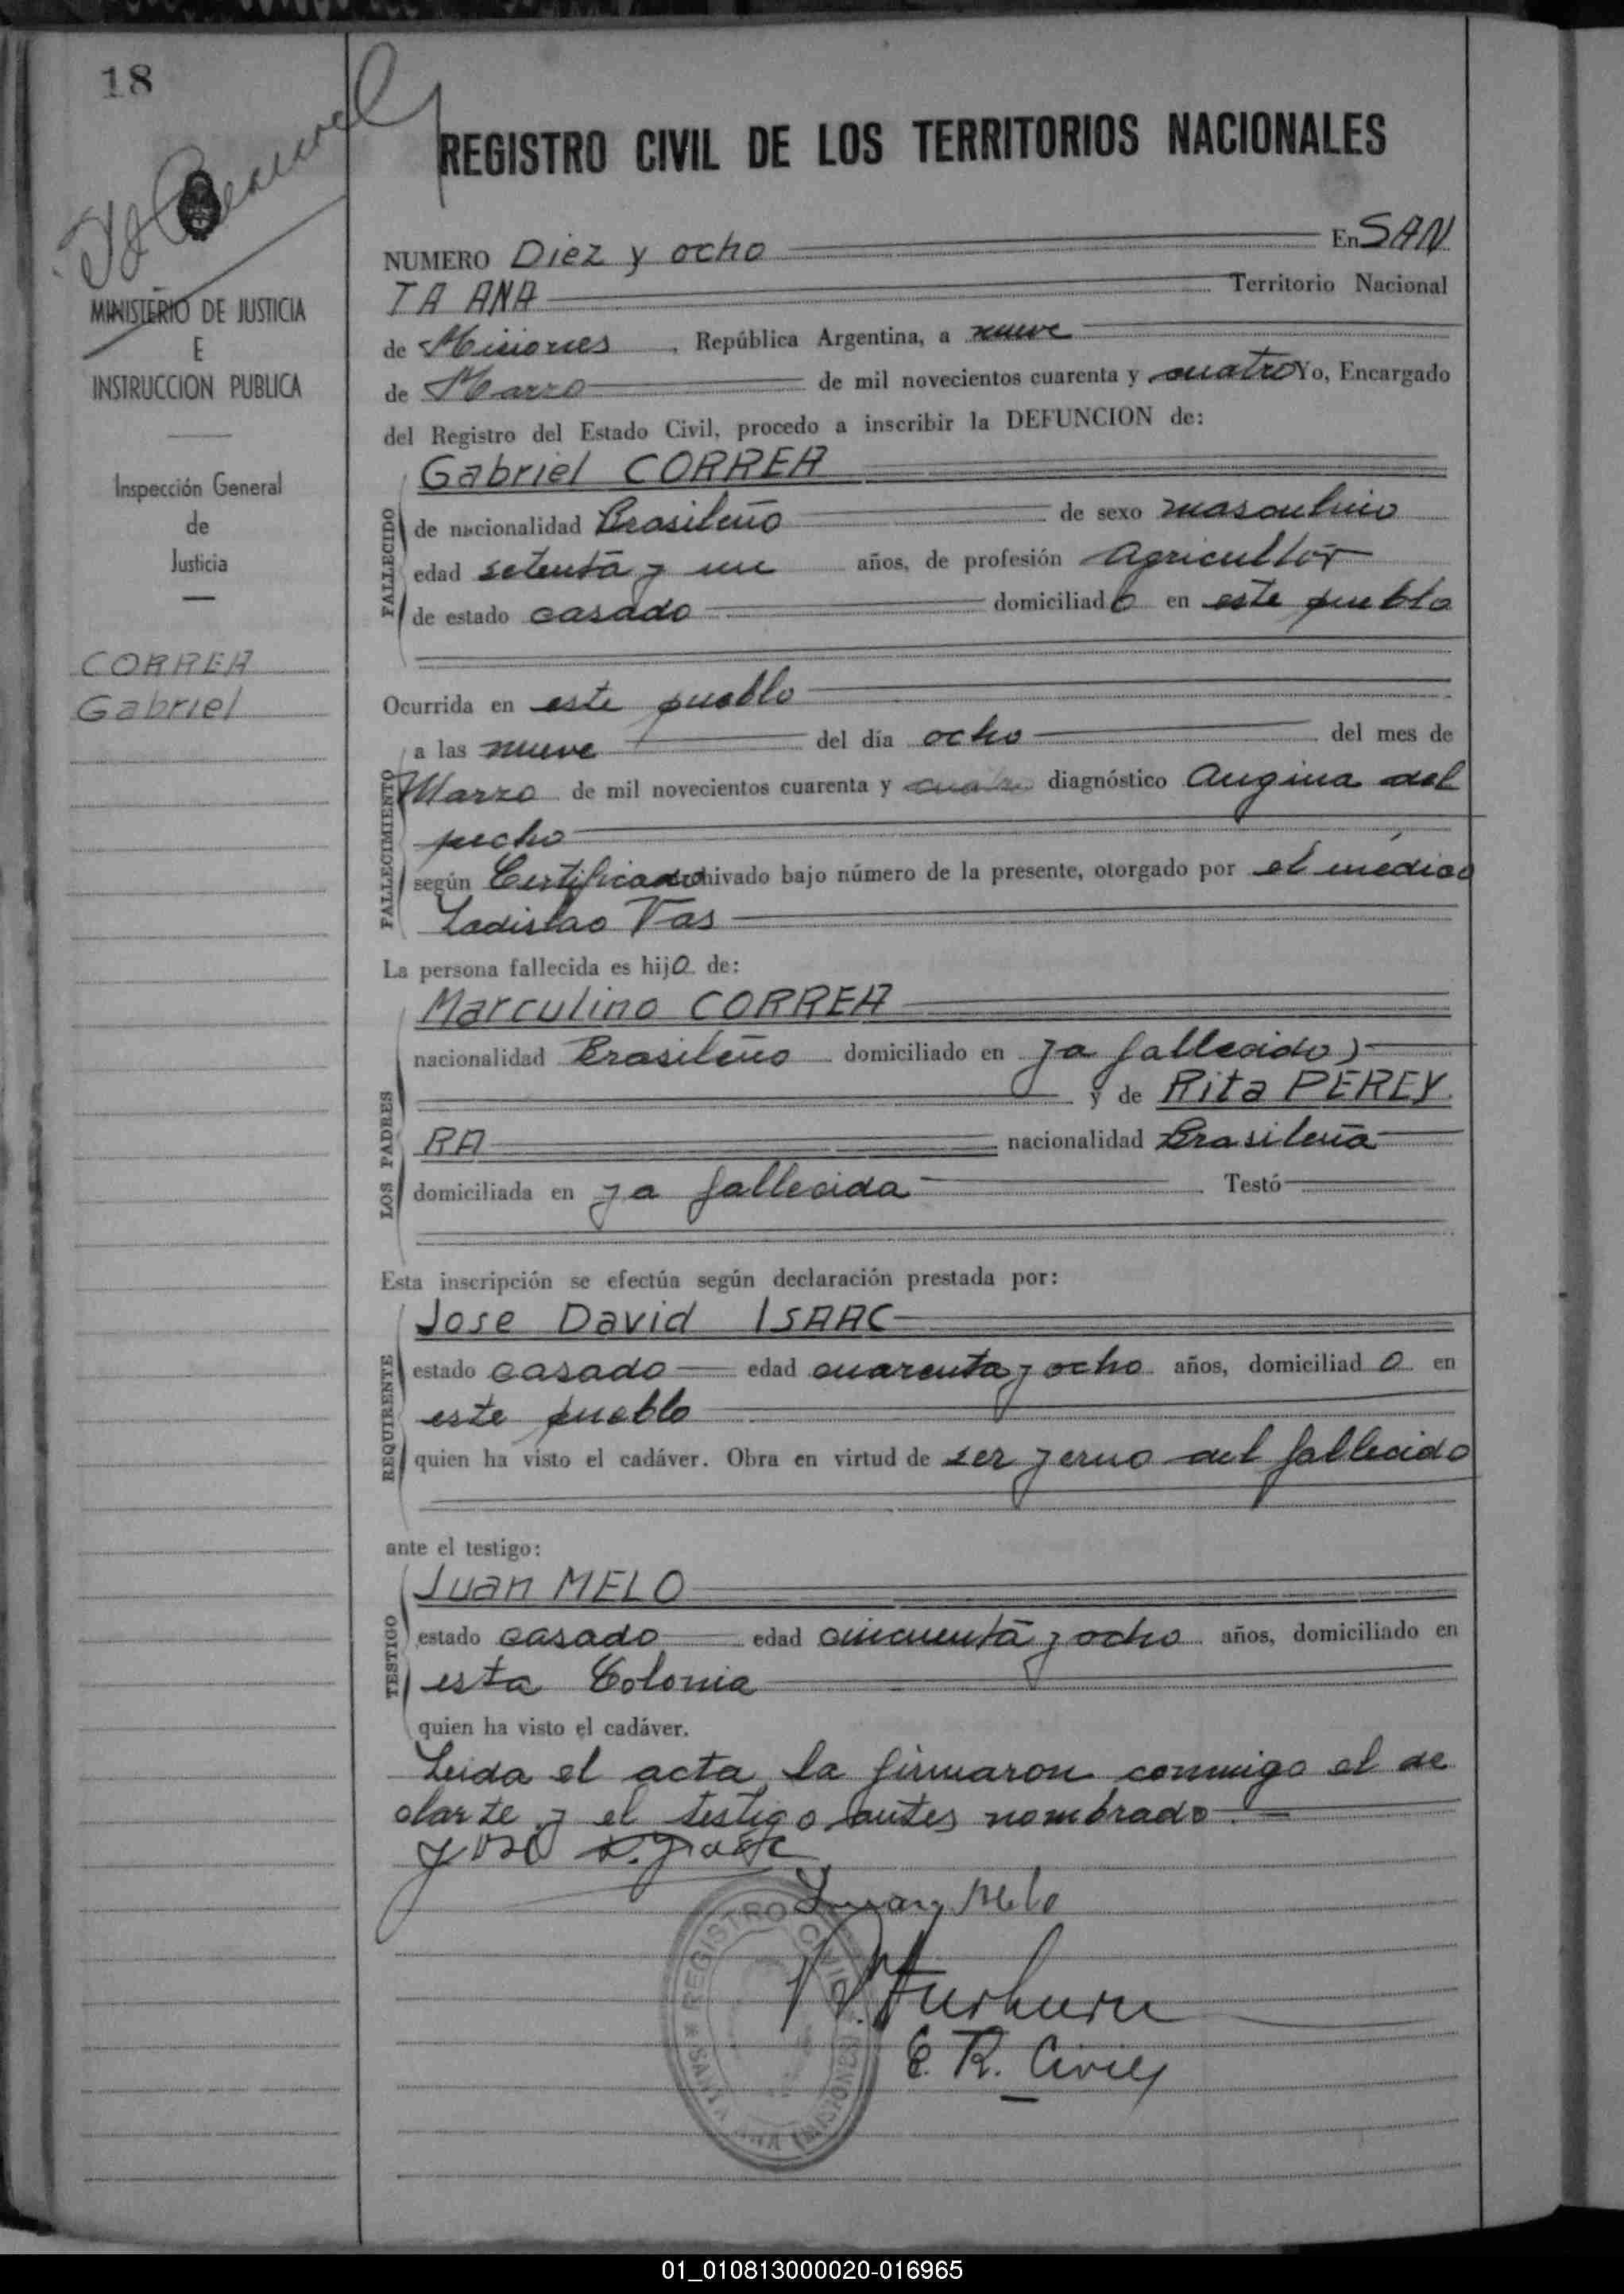 18
REGISTRO CIVIL DE LOS TERRITORIOS NACIONALES
MINISTERIO DE JUSTICIA
E
INSTRUCCION PUBLICA
Inspección General
de
Justicia
CORREA
Gabriel
NUMERO Diez y ocho En SAN
TA ANA Territorio Nacional
de Misiones, República Argentina, a nueve
de Marzo de mil novecientos cuarenta y cuatro Yo, Encargado
del Registro del Estado Civil, procedo a inscribir la DEFUNCION de:
FALLECIDO
Gabriel CORREA
de nacionalidad Brasileño de sexo masculino
edad setenta y un años, de profesión Agricultor
de estado casado domiciliado en este pueblo
Ocurrida en este pueblo
FALLECIMIENTO
a las nueve del día ocho del mes de
Marzo de mil novecientos cuarenta y cuatro diagnóstico Angina del
pecho
según Certificado hivado bajo número de la presente, otorgado por el médico
Ladislao Vas
La persona fallecida es hijo de:
LOS PADRES
Marculino CORREA
nacionalidad Brasileño domiciliado en ya fallecido)
y de Rita PEREY
RA nacionalidad Brasileña
domiciliada en ya fallecida Testó
Esta inscripción se efectúa según declaración prestada por:
REQUIRENTE
Jose David ISAAC
estado casado edad cuarenta y ocho años, domiciliado en
este pueblo
quien ha visto el cadáver. Obra en virtud de ser yerno del fallecido
ante el testigo:
TESTIGO
Juan MELO
estado casado edad cincuenta y ocho años, domiciliado en
esta Colonia
quien ha visto el cadáver.
Leida el acta, la firmaron conmigo el de
clarte y el testigo antes nombrado.
Jose D. Isaac
Juan Melo
E. R. Civil
REGISTRO CIVIL * SANTA ANA (MISIONES) *
01_010813000020-016965